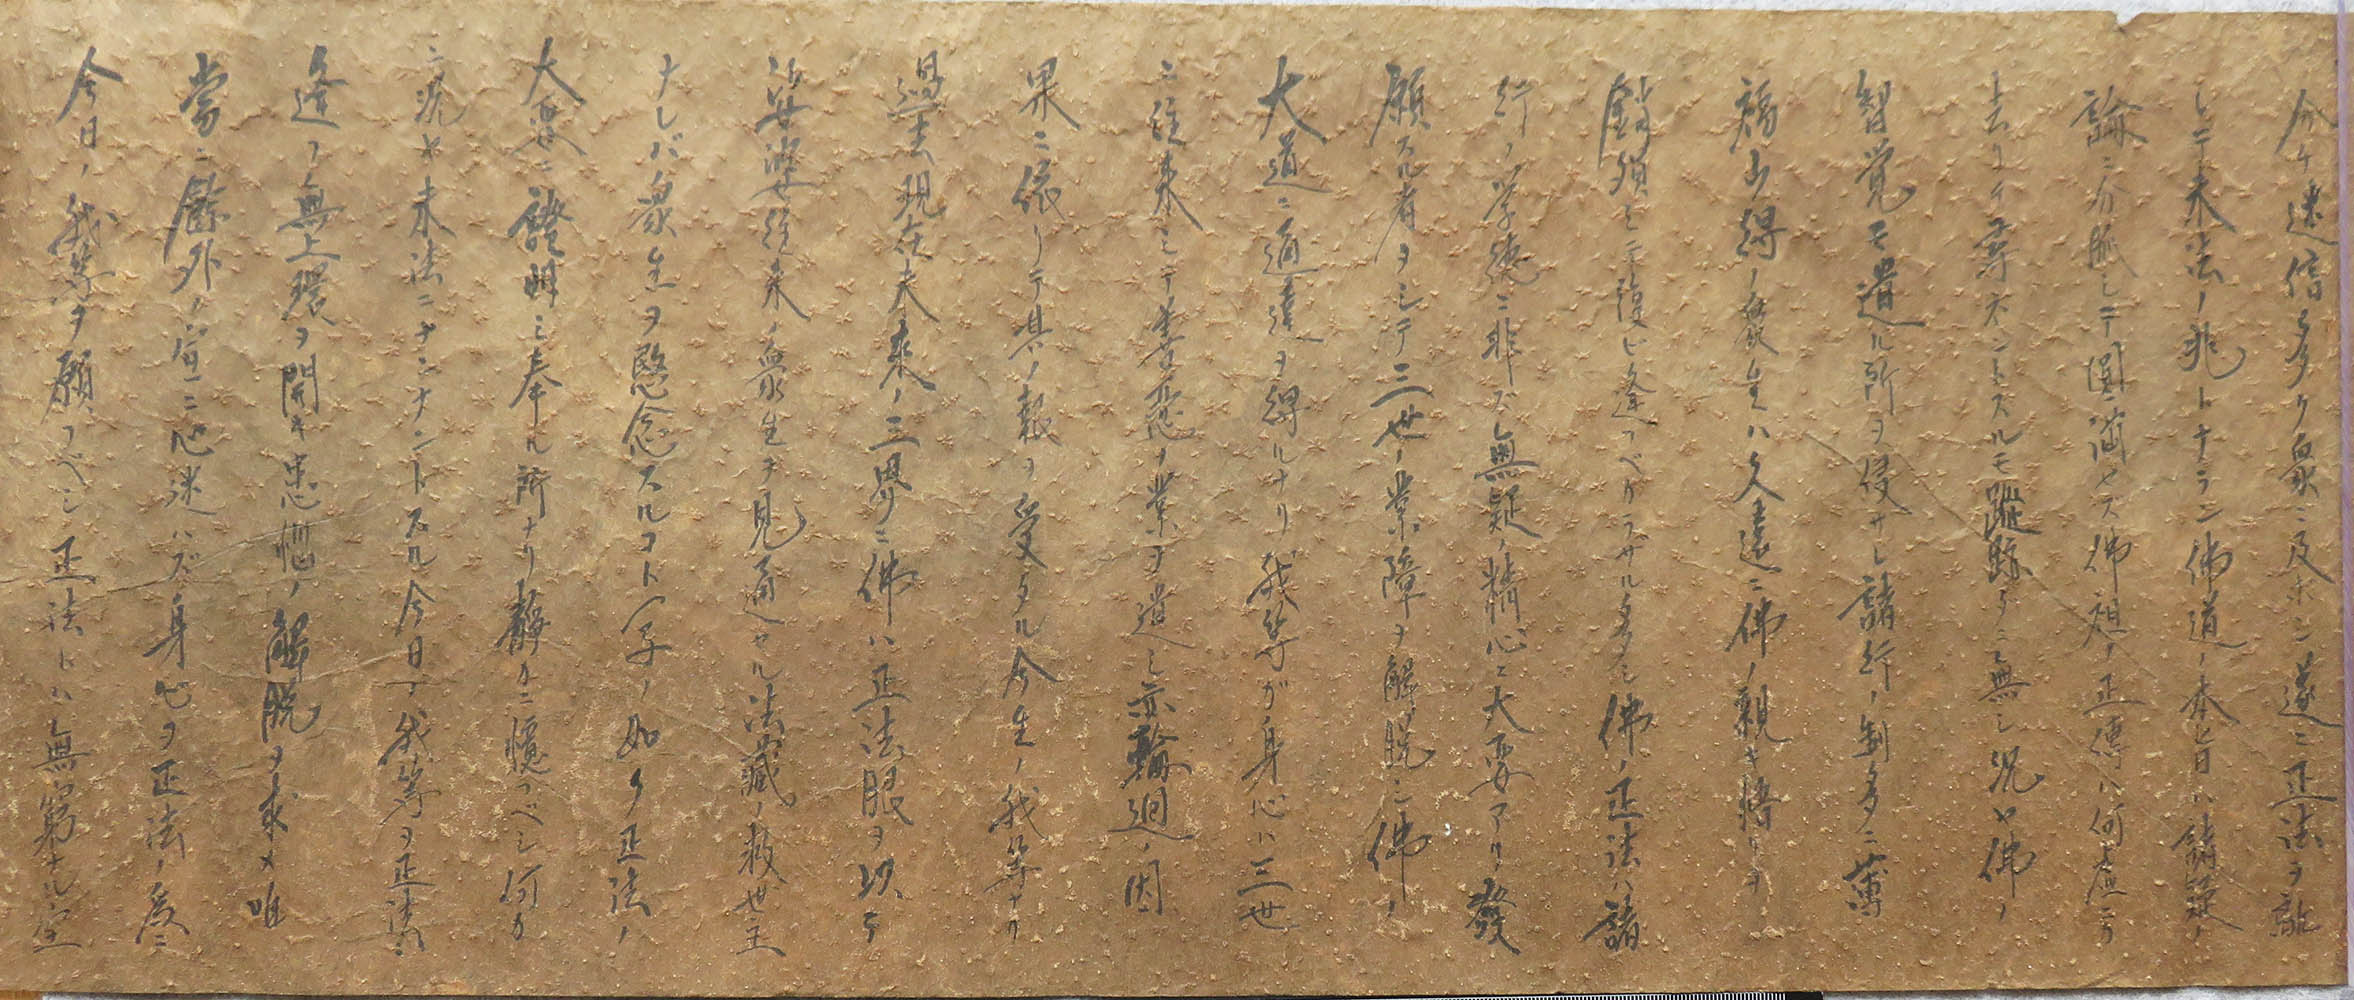 今ヤ迷信多ク衆ニ及ホシ遂ニ正法ヲ離
レテ末法ノ兆トナラン佛道ノ本旨ハ諸疑ノ
論ニ分派シテ圓滿セズ佛祖ノ正傳ハ何處ニカ
去リテ尋ネントスルモ蹤跡ダニ無シ況ヤ佛ノ
智覚モ遺ル所ヲ侵サレ諸行ノ制多クニ薄
福少得ノ衆生ハ久遠ニ佛ノ親キ悟リヲ
銷殞シテ復ビ逢フベカラザルタメシ佛ノ正法ハ諸
行ノ学徳ニ非ズ無疑ノ精心ニ大要アリ發
願スル者ヲシテ三世ノ業障ヲ解脱シ佛ノ
大道ニ通達ヲ得ルナリ我等ガ身心ハ三世
ニ往来シテ善惡ノ業ヲ造シ亦輪廻ノ因
果ニ依リテ其ノ報ヲ受タル今生ノ我等ナリ
過去現在未來ノ三界ニ佛ハ正法眼ヲ以テ
娑婆往来ノ衆生ヲ見通セル法藏ノ救世王
ナレバ衆生ヲ愍念スルコト一子ノ如ク正法ノ
大要ニ證明シ奉ル所ナリ靜カニ憶フベシ何カ
ニ況ヤ末法ニナンナントスル今日ノ我等ヲ正法ニ
逢フノ無上環ヲ開キ患惱ノ解脱ヲ求メ唯
當ニ餘外ノ宿ニ心迷ハズ身心ヲ正法ノ爲ニ
今日ノ我等ヲ願フベシ正法トハ無窮ナル宝